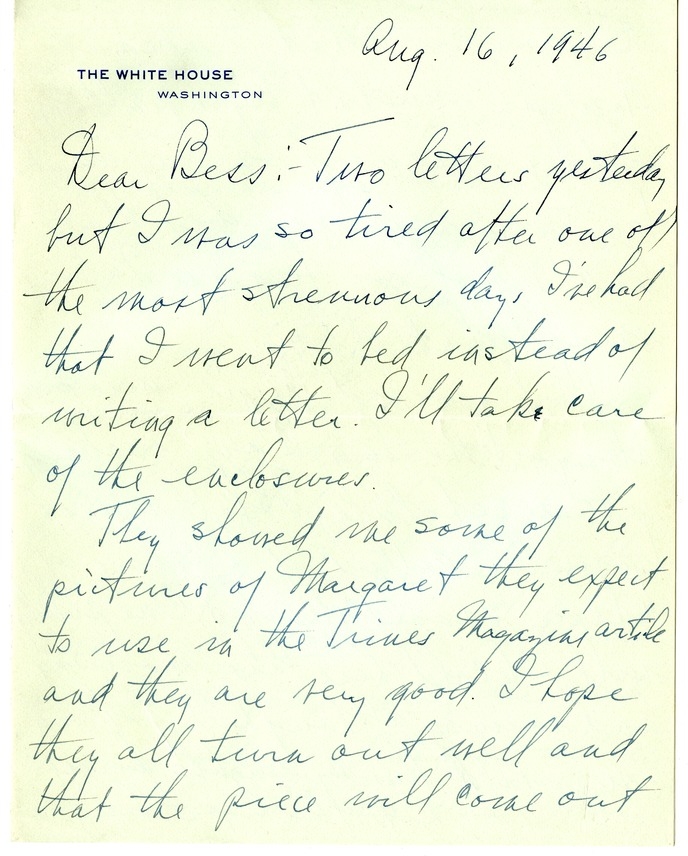 Aug. 16, 1946
THE WHITE HOUSE
WASHINGTON
Dear Bess:- Two letters yesterday
but I was so tired after one of
the most strenuous days I've had
that I went to bed instead of
writing a letter. I'll take care
of the enclosures.
They showed me some of the
pictures of Margaret they expect
to use in the Times Magazine article
and they are very good. I hope
they all turn out well and
that the piece will come out